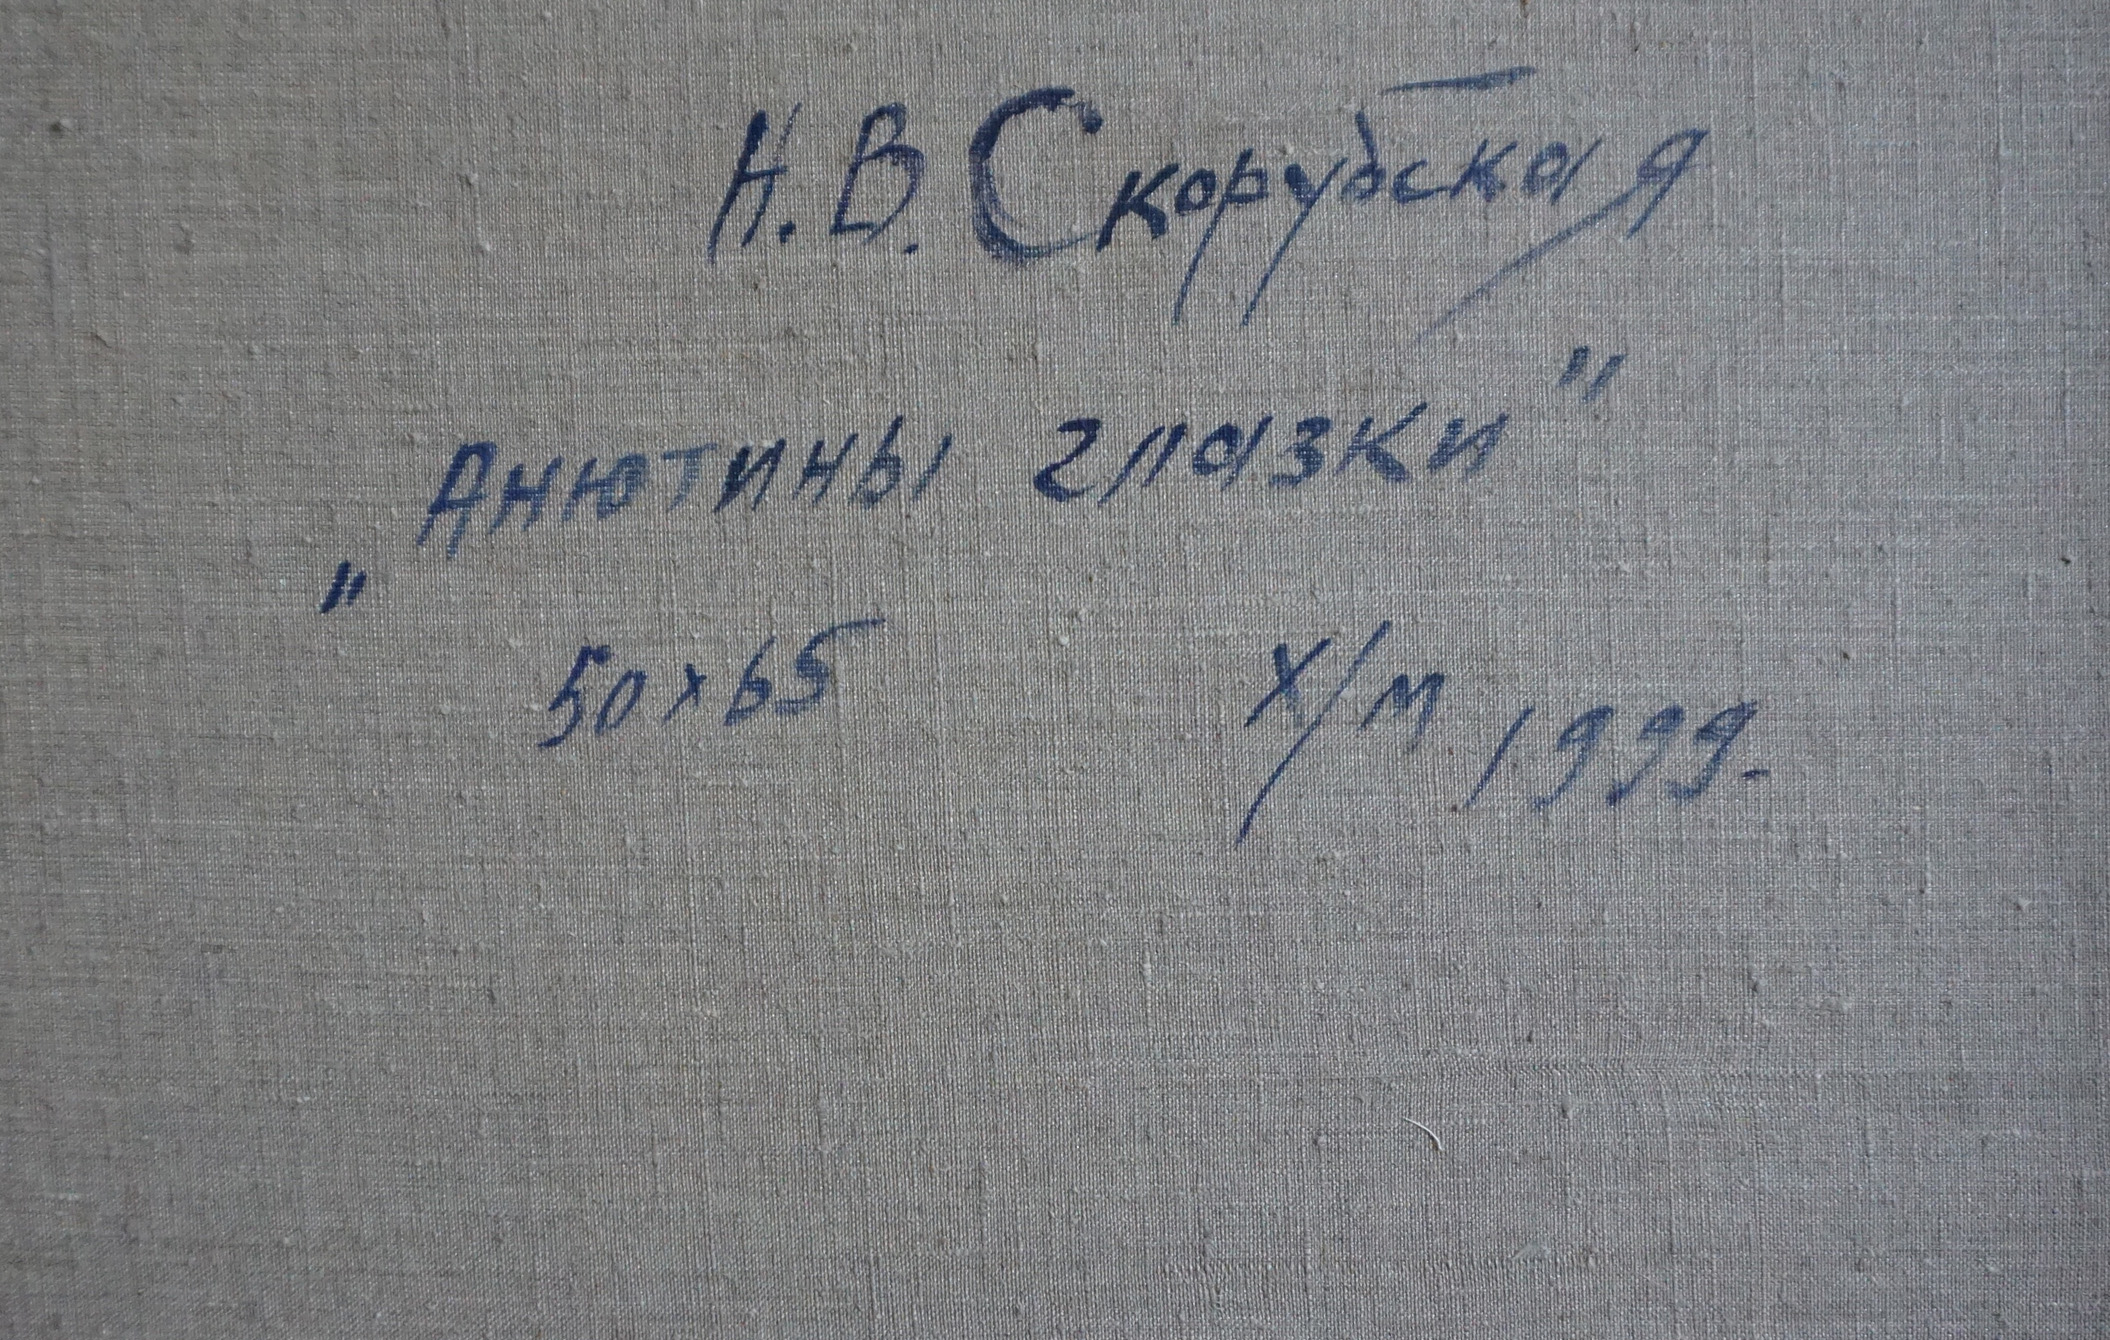 Н. В. Скорубская
„Анютины глазки"
50 х 65 Х/м 1999.